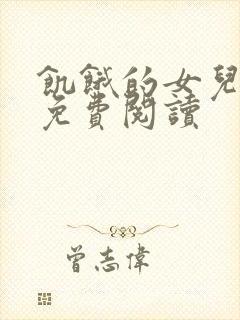 飢餓的女兒
免費閱讀
曾志偉